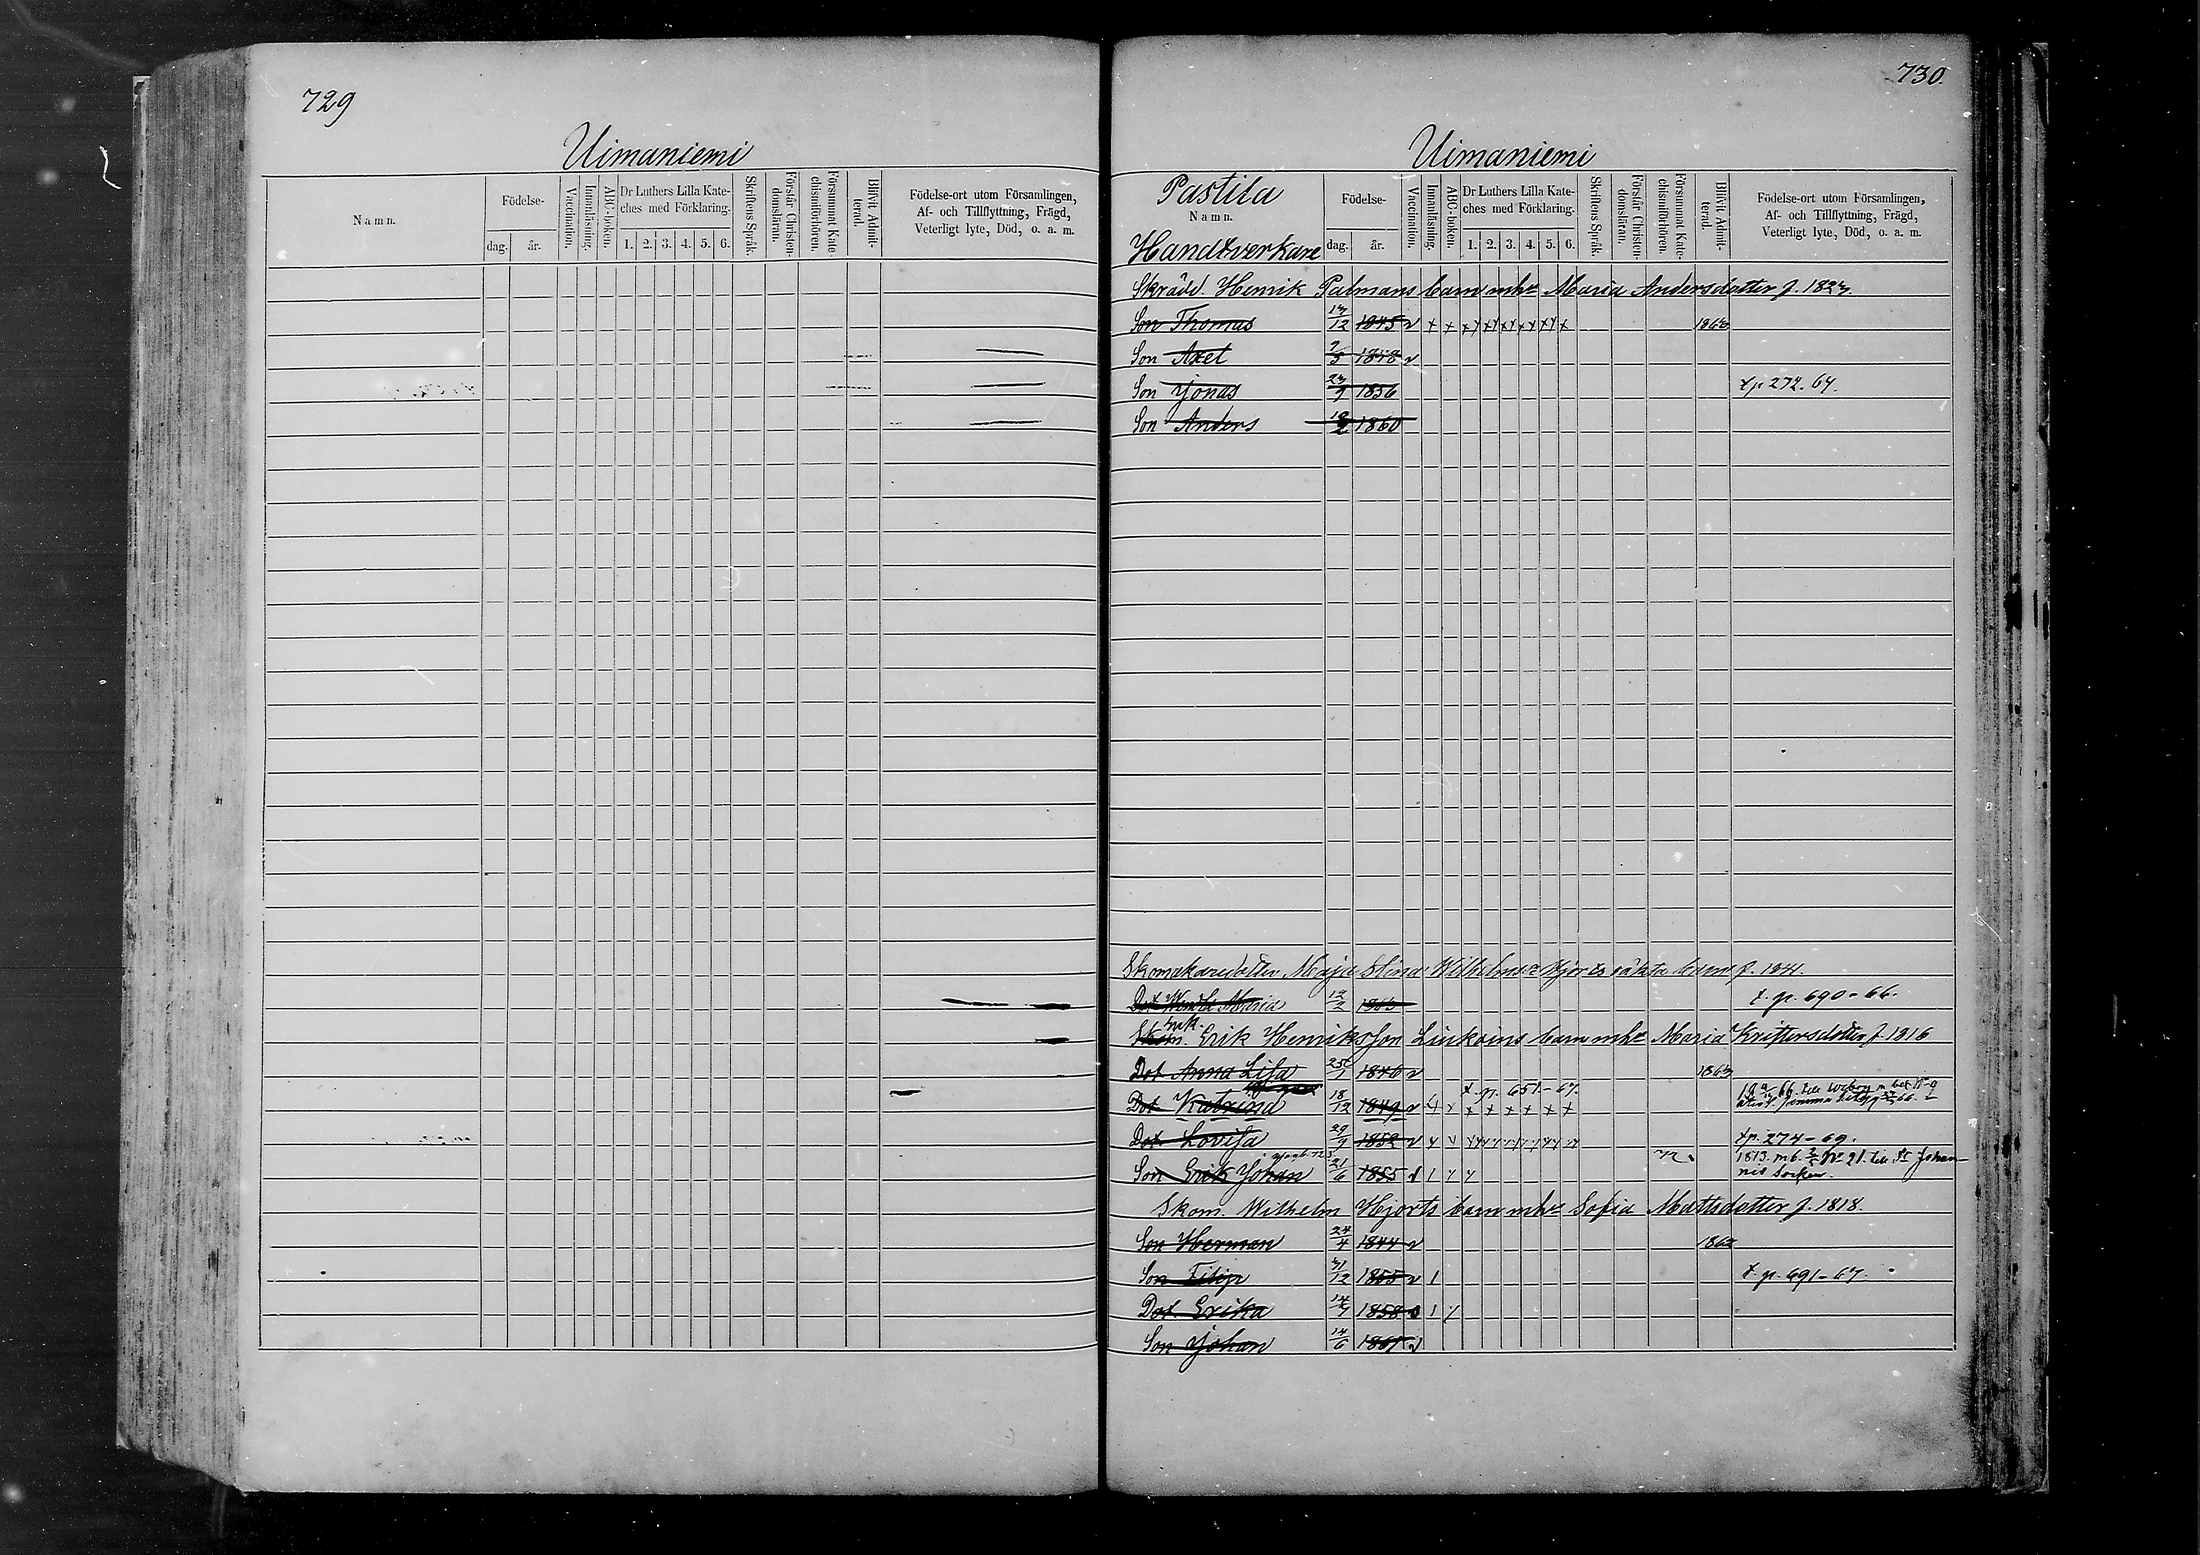 729
Uimaniemi
Namn.
Födelse-
dag. år.
Vaccination.
Innanläsning.
ABC-boken.
Dr Luthers Lilla Kate-
ches med Förklaring.
1. 2. 3. 4. 5. 6.
Skriftens Språk.
Förstår Christen-
domsläran.
Försummat Kate-
chismiförhören.
Blifvit Admit-
terad.
Födelse-ort utom Församlingen,
Af- och Tillflyttning, Frägd,
Veterligt lyte, Död, o. a. m.
730.
Uimaniemi
Pastila
Namn.
Handtverkare
Födelse-
dag. år.
Vaccination.
Innanläsning.
ABC-boken.
Dr Luthers Lilla Kate-
ches med Förklaring.
1. 2. 3. 4. 5. 6.
Skriftens Språk.
Förstår Christen-
domsläran.
Försummat Kate-
chismiförhören.
Blifvit Admit-
terad.
Födelse-ort utom Församlingen,
Af- och Tillflyttning, Frägd,
Veterligt lyte, Död, o. a. m.
Skrädd. Henrik Palmans barn mhr Maria Andersdotter f. 1823.
Son Thomas 1845 v x x 1863
Son Axel 1848 v
Son Jonas 23/9 1856 t.p 272. 64.
Son Anders 1860
Skomakaredotter Maja Stina Wilhelmsr Hjorts oäkta barn f. 1841.
Dot. Wendla Maria 12/2 1863 t. p. 690-66.
Erik Henriksson Linkoins barn mhr Maria Kristersdotter f. 1816
Dot Anna Lisa 25/1 1846 v 1863
t. p. 651-67.
Dot Katrina 18/12 1849 v x x x x x x x
Dot Lovisa 29/9 1852 v t.p. 274-69.
Son Erik Johan 21/6 1855 v 1 till St Johan-
nis Socken.
Skom. Wilhelm Hjorts barn mhr Sofia Mattsdotter f. 1818.
Son Herman 24/4 1844 v 1862
Son Filip 31/12 1855 v 1 t. p. 691-67.
Dot Erika 14/7 1858 1
Son Johan 14/6 1861 v